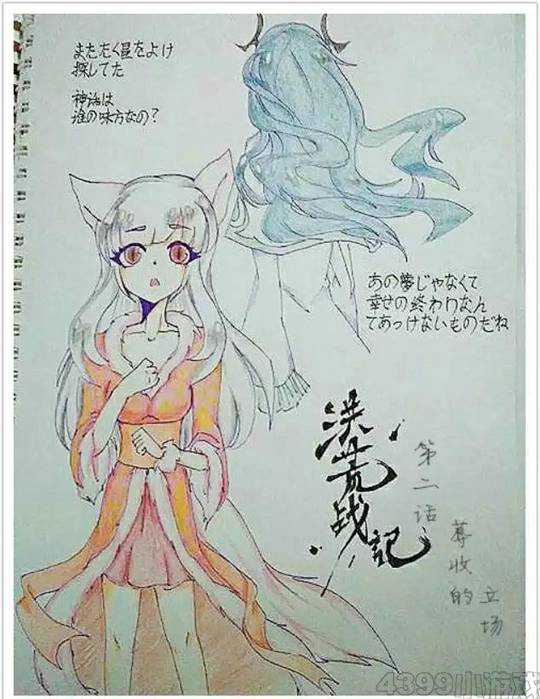 またたく星をよけ
探してた
神話は
誰の味方なの？
あの夢じゃなくて
幸せの終わりなん
てあっけないものだね
洪荒战記
第二话
蓐收的
立场
4399小游戏